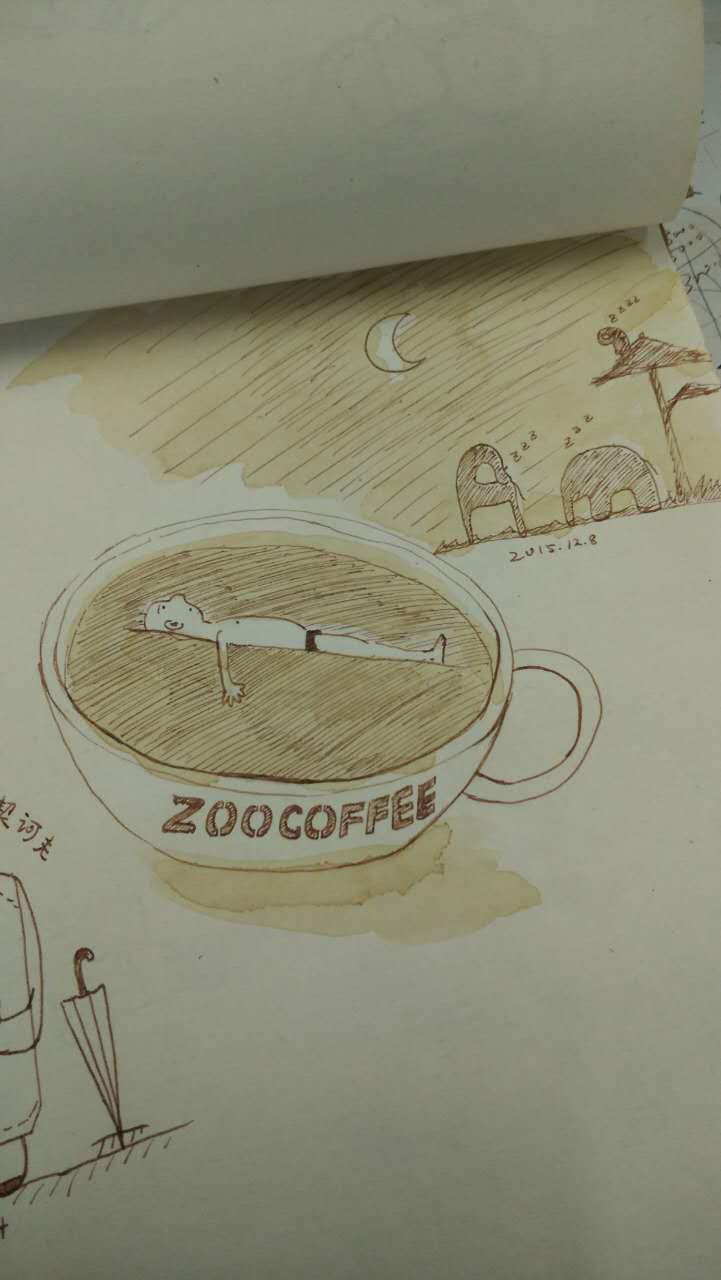 zzzz
zzz
zzz
2015.12.8
ZOOCOFFEE